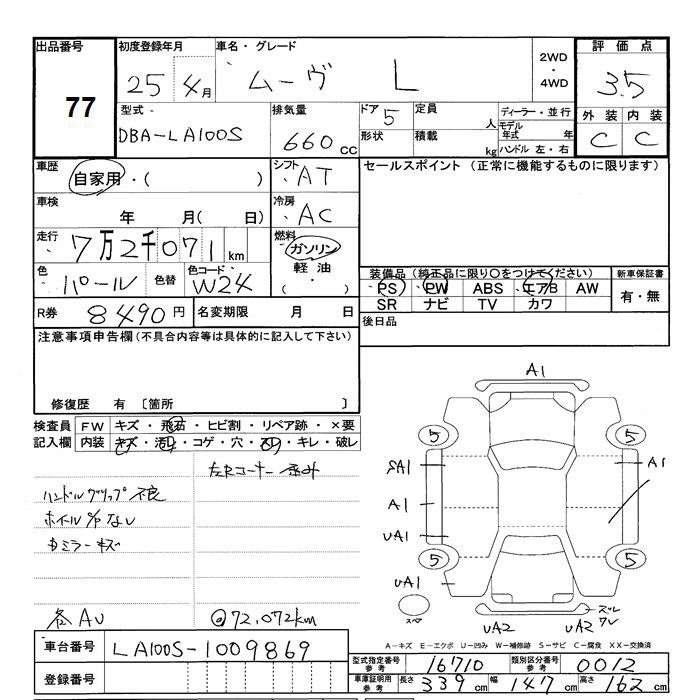 出品番号 初度登録年月 車名・グレード 2WD ・ 4WD 評価点
77 25 4月 ムーヴ L 3.5
型式 排気量 ドア 5 定員 人 ディーラー・並行 外装 内装
DBA-LA100S 660cc 形状 積載 kg モデル年式 年 ハンドル 左・右 C C
車歴 シフト セールスポイント (正常に機能するものに限ります)
自家用・( ) AT
車検 冷房
年 月( 日) AC
走行 燃料
7万2千071km ガソリン
色 色替 色コード 軽油 装備品 (純正品に限り○をつけてください) 新車保証書
パール W24 ・( ) PS PW ABS エアB AW 有・無
SR ナビ TV カワ
R券 8490円 名変期限 月 日 後日品
注意事項申告欄 (不具合内容等は具体的に記入して下さい)
修復歴 有 〔箇所 〕
検査員 FW キズ・飛石・ヒビ割・リペア跡・×要
記入欄 内装 キズ・汚れ・コゲ・穴・スレ・キレ・破レ
左右コーナー歪み
ハンドルグリップ不良
ホイールなし
ミラーキズ
各AU @72,072km
A1
5 5
A1 A1
A1
UA1
5 5
UA1
スペア UA2 UA2 ズレ ワレ
A-キズ E-エクボ U-凹み W-補修跡 S-サビ C-腐食 XX-交換済
車台番号 LA100S-1009869
型式指定番号 参考 16710 類別区分番号 参考 0012
登録番号
車庫証明用 参考 長さ 339cm 幅 147cm 高さ 162cm